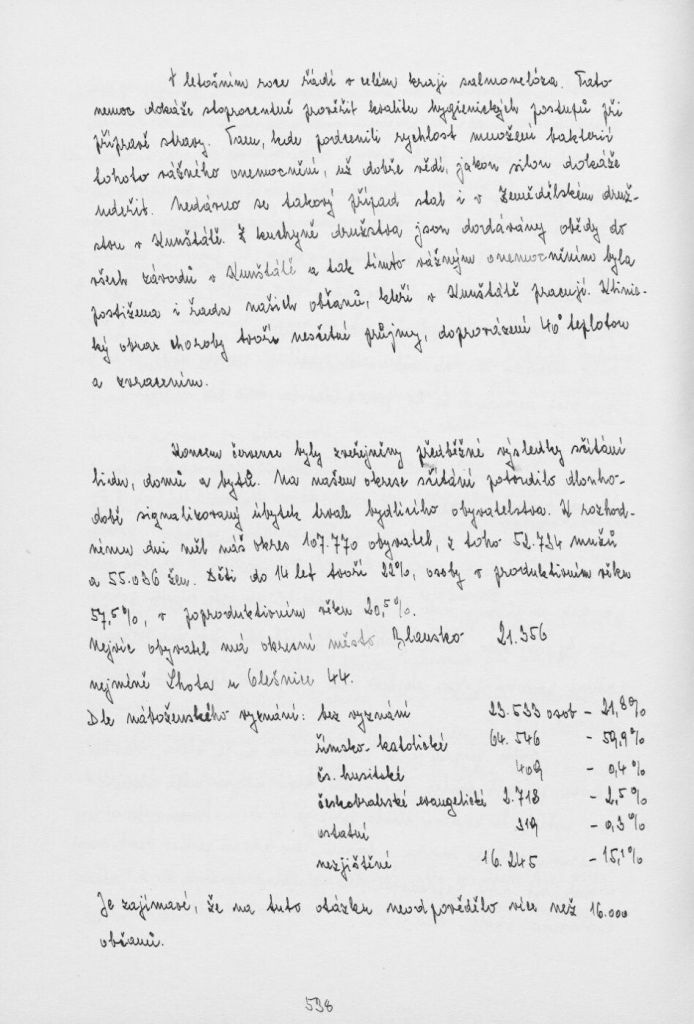 V letošním roce řádí v celém kraji salmonelóza. Tato
nemoc dokáže stoprocentně prověřit kvalitu hygienických postupů při
přípravě stravy. Tam, kde podcenili rychlost množení bakterií
tohoto vážného onemocnění, už dobře vědí, jakou silou dokáže
udeřit. Nedávno se takový případ stal i v Zemědělském druž-
stvu v Kunštátě. Z kuchyně družstva jsou dodávány obědy do
všech závodů v Kunštátě a tak tímto vážným onemocněním byla
postižena i řada našich občanů, kteří v Kunštátě pracují. Klinic-
ký obraz choroby tvoří nesčetné průjmy, doprovázení 40° teplotou
a zvracením.
Koncem července byly zveřejněny předběžné výsledky sčítání
lidu, domů a bytů. Na našem okrese sčítání potvrdilo dlouho-
době signalizovaný úbytek trvale bydlícího obyvatelstva. K rozhod-
nému dni měl náš okres 107.770 obyvatel, z toho 52.734 mužů
a 55.036 žen. Děti do 14 let tvoří 22%, osoby v produktivním věku
57,5%, v poproduktivním věku 20,5%.
Nejvíc obyvatel má okresní město Blansko 21.356
nejméně Lhota u Olešnice 44.
Dle náboženského vyznání: bez vyznání 23.533 osob - 21,8%
římsko-katolické 64.546 - 59,9%
čs. husitské 409 - 0,4%
českobratrské evangelické 2.718 - 2,5%
ostatní 319 - 0,3%
nezjištěné 16.245 - 15,1%
Je zajímavé, že na tuto otázku neodpovědělo více než 16.000
občanů.
538